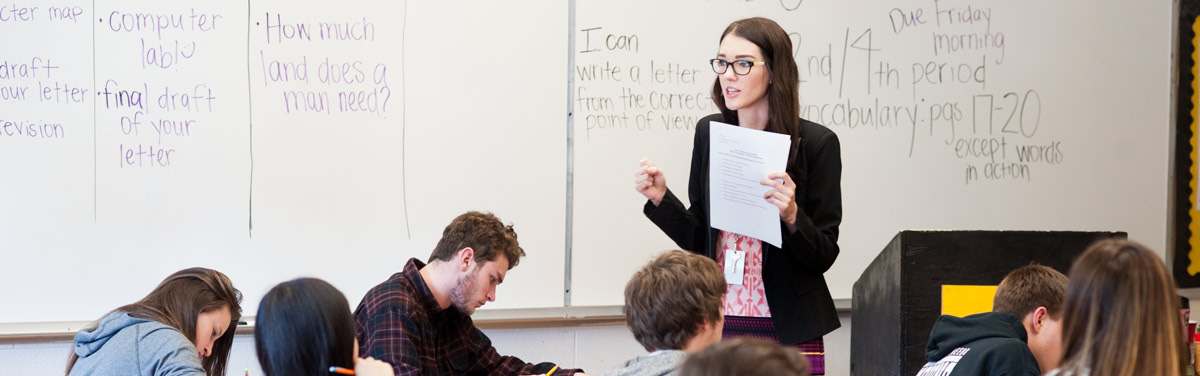 cter map
draft
our letter
revision
• computer
lab!
• final draft
of your
letter
• How much
land does a
man need?
I can
write a letter
from the correct
point of view
2nd/4th period
vocabulary: pgs 17-20
except words
in action
Due Friday
morning